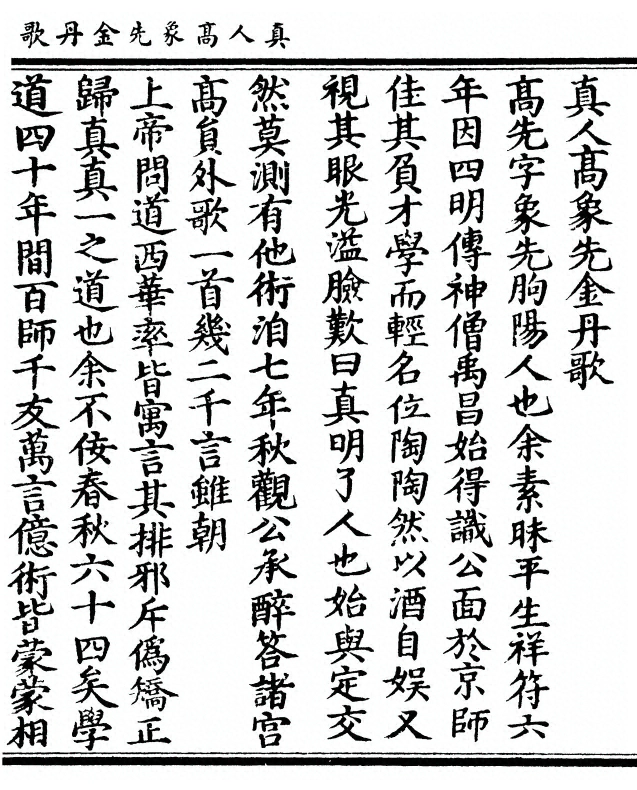 真人髙象先金丹歌
真人髙象先金丹歌
髙先字象先朐陽人也余素昧平生祥符六
年因四明傳神僧禹昌始得識公面於京師
佳其負才學而輕名位陶陶然以酒自娱又
視其眼光溢臉歎曰真明了人也始與定交
然莫測有他術洎七年秋觀公承醉答諸宫
髙負外歌一首幾二千言雖朝
上帝問道西華率皆寓言其排邪斥僞矯正
歸真真一之道也余不佞春秋六十四矣學
道四十年間百師千友萬言億術皆蒙蒙相